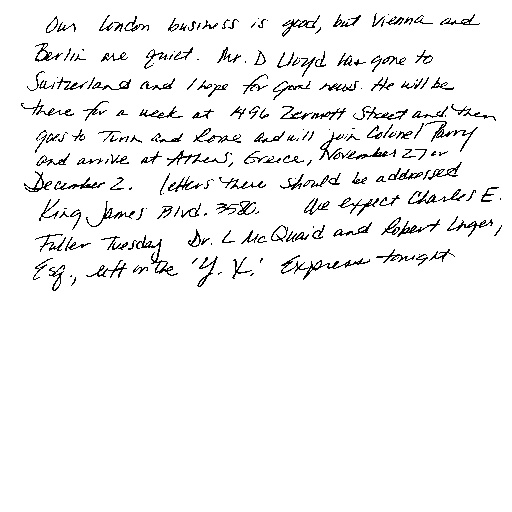 Our London business is good, but Vienna and
Berlin are quiet. Mr. D Lloyd has gone to
Switzerland and I hope for good news. He will be
there for a week at 1496 Zermott Street and then
goes to Turin and Rome and will join Colonel Parry
and arrive at Athens, Greece, November 27 or
December 2. Letters there should be addressed
King James Blvd. 3580. We expect Charles E.
Fuller Tuesday Dr. L McQuaid and Robert Unger,
Esq., left on the 'Y. X.' Express tonight